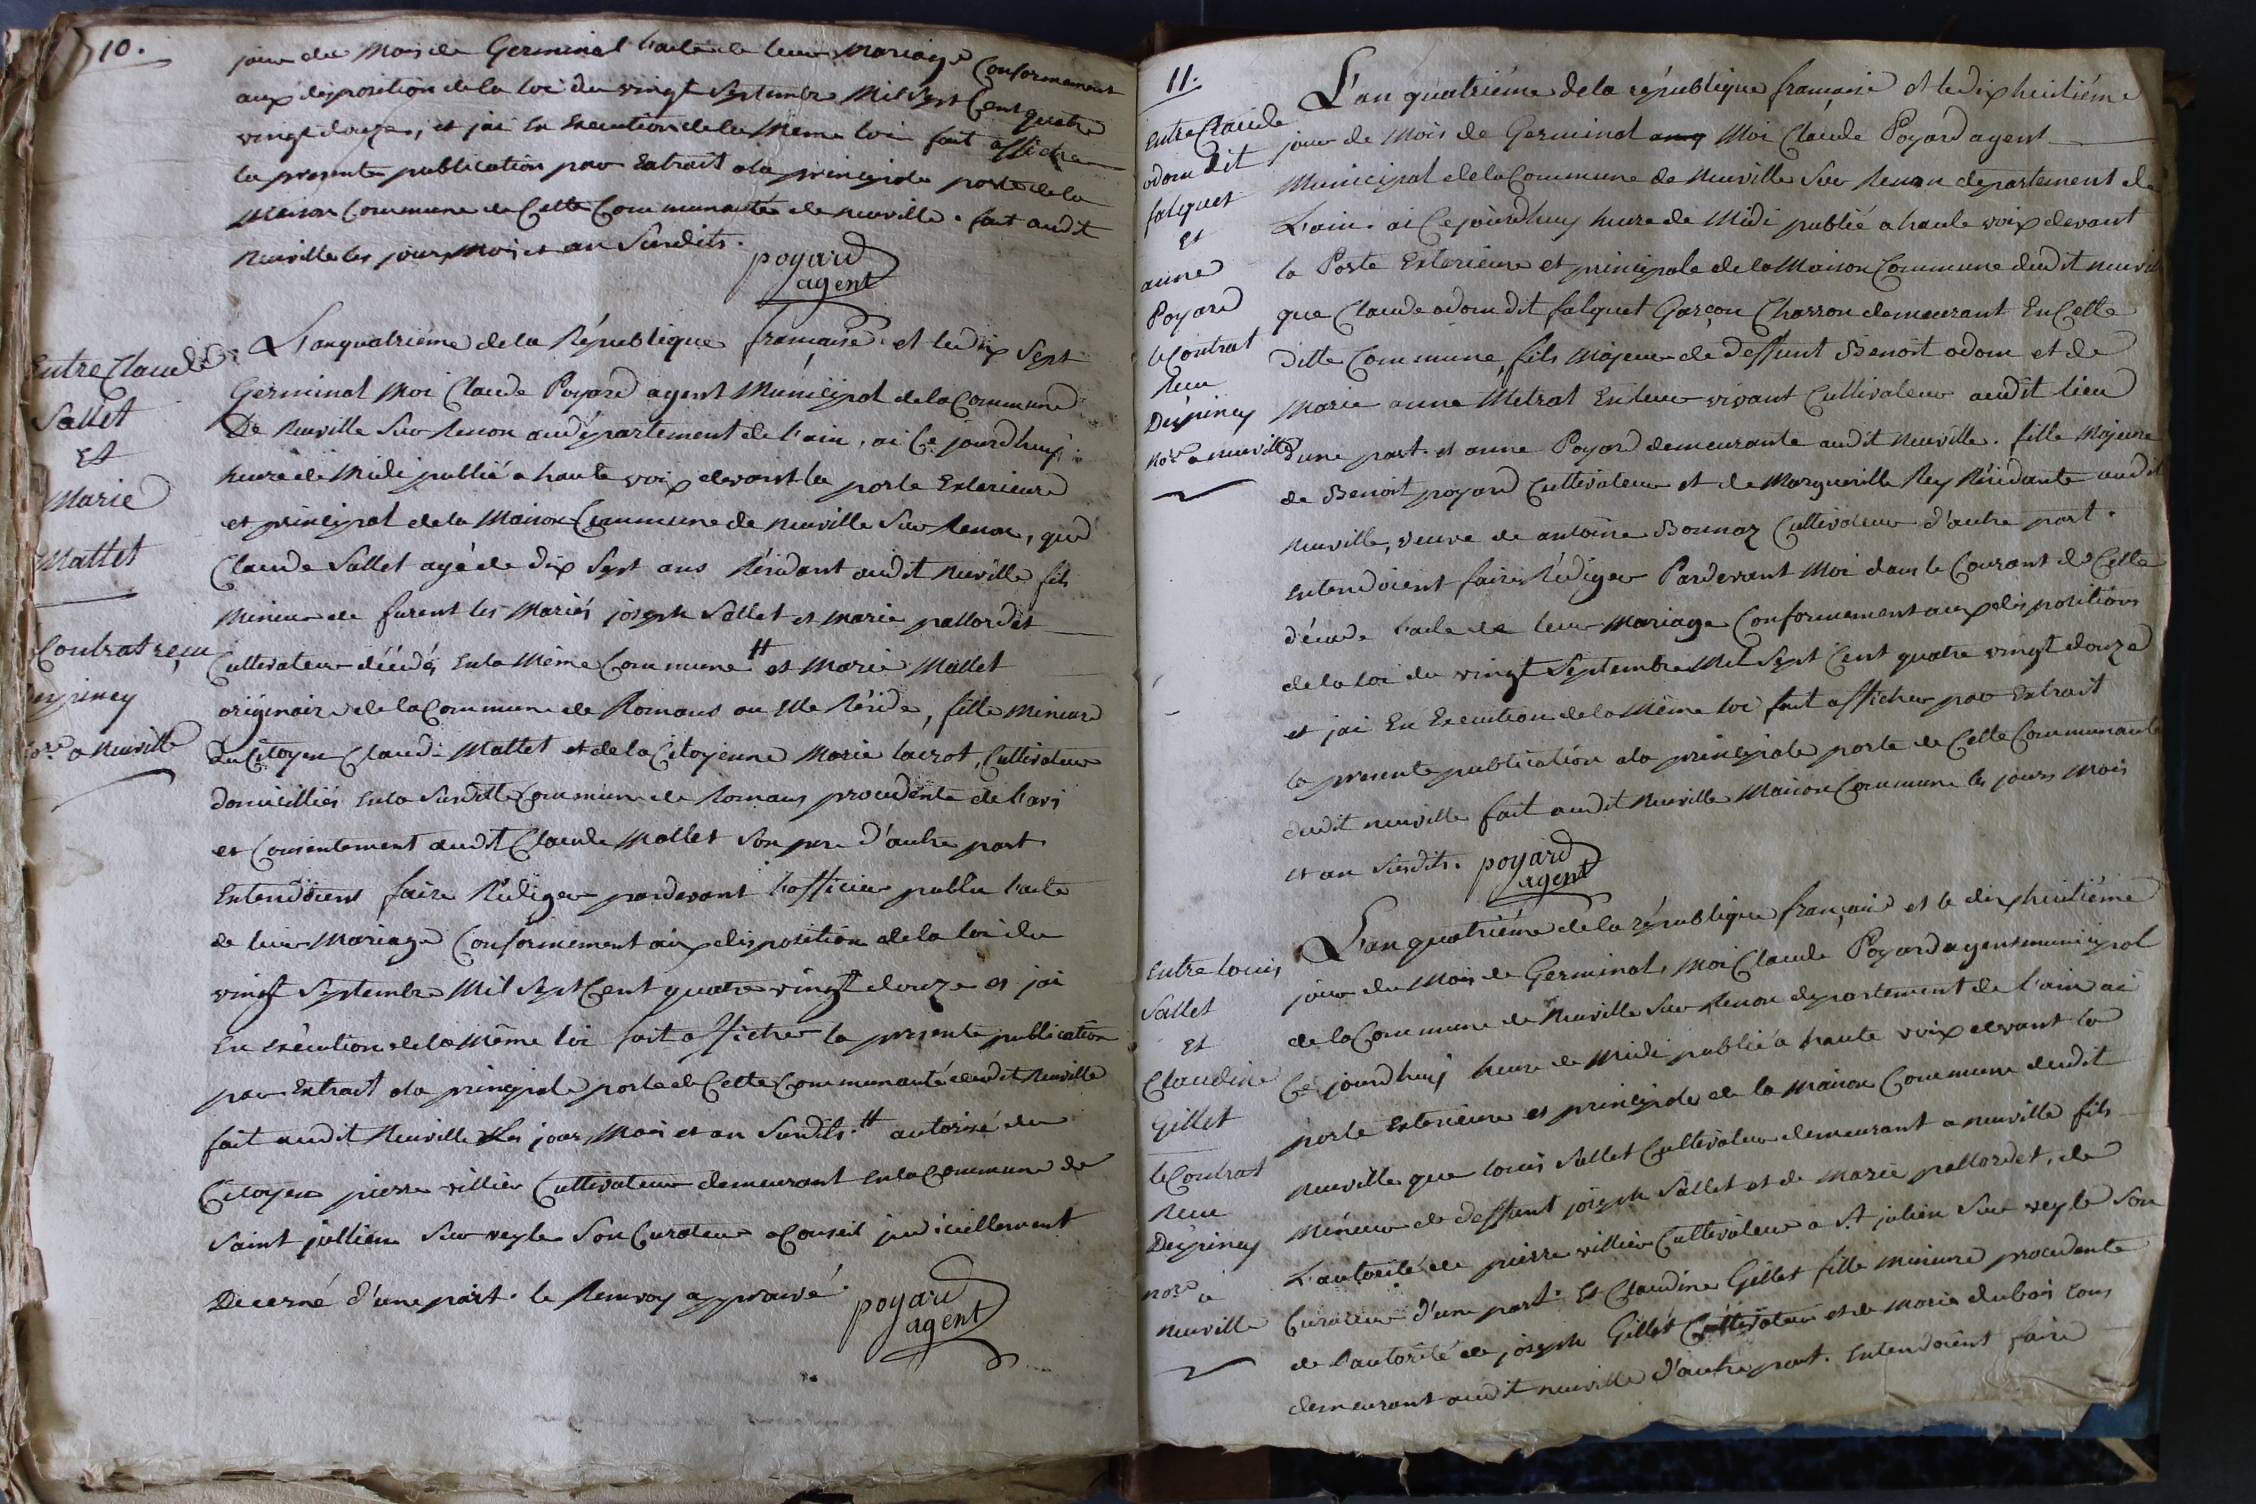 jour du Mois de Germinal l'acte de leur Mariage Conformement
aux disposition de la loi du vingt Septembre Mil Sept Cent quatre
vingt douze, et jai En Execution de la Meme loi fait afficher
la presente publication par Extrait a la principale porte de la
Maison Commune de Cette Communauté de neuville. fait audit
Neuville les jour, Mois et an Susdits.
poyard
agent
Entre Claude
Sallet
Et
Marie
Mallet
Contrat reçu
Depiney
no.re a Neuville
L'an quatriéme de la République française et le dix Sept
Germinal Moi Claude Poyard agent Municipal de la Commune
De Neuville Sur Renon au département de l'ain, ai Ce jourdhuy
heure de Midi publié a haute voix devant la porte Exterieure
et principal de la Maison Commune de neuville Sur Renon, que
Claude Sallet agé de dix Sept ans Résidant audit Neuville fils
Mineur de furent les Mariés joseph Sallet et marie pallordet
Cultivateur décédés En la Même Commune # et Marie Mallet
originaire de la Commune de Romans ou Elle Réside, fille Mineure
Du Citoyen Claude Mallet et de la Citoyenne Marie lacrot, Cultivateur
domicilliés En la Susditte Commune de Romans procedente de l'avis
et Consentement dudit Claude Mallet Son pere d'autre part
Entendoient faire Rédiger pardevant l'officier public l'acte
de leur Mariage Conformement aux disposition de la loi du
vingt Septembre Mil Sept Cent quatre vingt douze et jai
En exécution de la Même loi fait afficher la presente publication
par Extrait a la principale porte de Cette Communauté dudit Neuville
fait audit Neuville Les jour, Mois et an Susdits. # autorisé du
Citoyen pierre villier Cultivateur demeurant En la Commune de
Saint jullien Sur veyle Son Curateur a Conseil judiciellement
Decerné d'une part. le Renvoy approuvé.
poyard
agent
10.
11.
Entre Claude
odom dit
falquet
Et
anne
Poyard
le Contrat
Recu
Depiney
no.re a neuville
L'an quatriéme de la république française et le dix huitiéme
jour de Mois de Germinal Moi Claude Poyard agent
Municipal de la Commune de Neuville Sur Renon departement de
L'ain. ai Ce jourdhuy heure de Midi publié a haute voix devant
la Porte Exterieure et principale de la Maison Commune dudit neuville
que Claude odom dit falquet Garçon Charron demeurant En Cette
ditte Commune, fils Majeur de deffunt Benoit odom et de
Marie anne Metrat En leur vivant Cultivateur audit lieu
d'une part. et anne Poyard demeurante audit Neuville. fille Majeure
de Benoit poyard Cultivateur et de Margueritte Rey Résidante audit
Neuville, veuve de antoine Bonnaz Cultivateur d'autre part.
Entendoient faire Rédiger Pardevant Moi dans le Courant de Cette
décade l'acte de leur Mariage Conformement aux dispositions
de la loi du vingt Septembre Mil Sept Cent quatre vingt douze
et jai En Execution de la Même loi fait afficher par Extrait
la presente publication a la principale porte de Cette Communauté
dudit neuville fait audit Neuville Maison Commune les jours Mois
et an Susdits.
poyard
agent
Entre louis
Sallet
Et
Claudine
Gillet
le Contrat
Recu
Depiney
no.re a
Neuville
L'an quatriéme de la république français et le dix huitiéme
jour du Mois de Germinal, Moi Claude Poyard agent municipal
de la Commune de Neuville Sur Renon departement de l'ain ai
Ce jourdhuy heure de Midi publié a haute voix devant la
porte Exterieure et principale de la Maison Commune dudit
Neuville que louis Sallet Cultivateur demeurant a neuville fils
Mineur de deffunt joseph Sallet et de Marie pallordet, de
L'autorité de pierre villier Cultivateur a St julien Sur veyle Son
Curateur d'une part. Et Claudine Gillet fille Mineure procedente
de l'autorité de joseph Gillet Cultivateur et de Marie dubois tous
demeurant audit neuville d'autre part. Entendoient faire